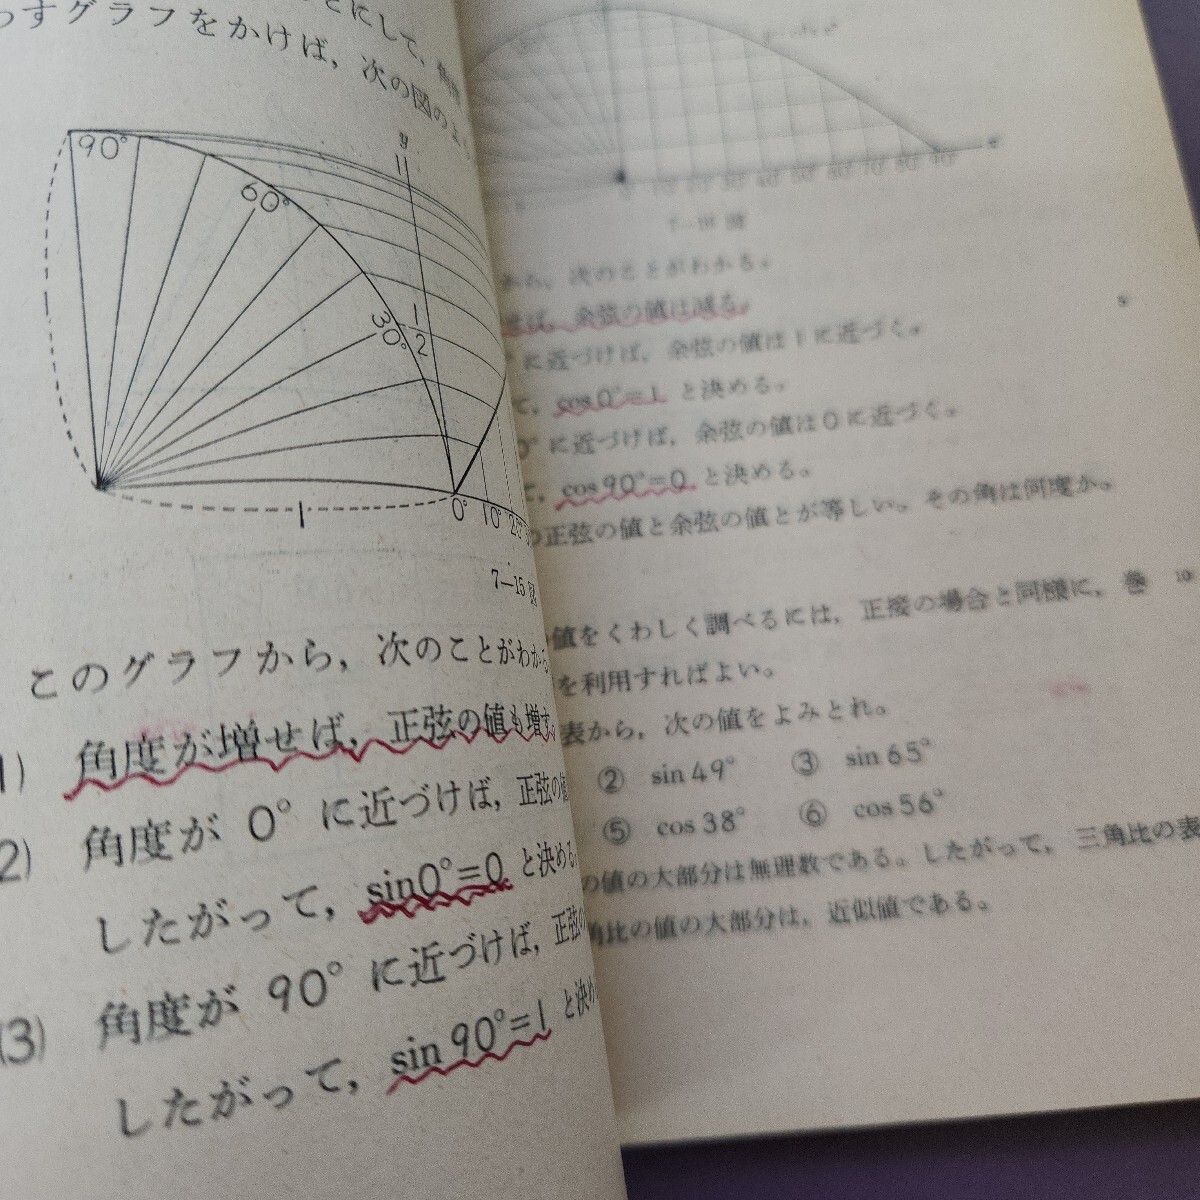 わすグラフをかけば，次の図のよう
90°
60°
30°
y
1
1/2
1
1
0° 10° 20°
7—15 図
このグラフから，次のことがわかる
1) 角度が増せば，正弦の値も増す。
2) 角度が 0° に近づけば，正弦の値
したがって，sin0°=0 と決める。
(3) 角度が 90° に近づけば，正弦の
したがって，sin 90°=1 と決め
10 20 30 40 50 60 70 80 90
から，次のことがわかる。
せば，余弦の値は減る。
5
° に近づけば，余弦の値は1に近づく。
て，cos0°=1 と決める。
0° に近づけば，余弦の値は0に近づく。
cos90°=0 と決める。
の正弦の値と余弦の値とが等しい。その角は何度か。
値をくわしく調べるには，正接の場合と同様に，巻
10
を利用すればよい。
表から，次の値をよみとれ。
② sin49° ③ sin65°
⑤ cos38° ⑥ cos56°
の値の大部分は無理数である。したがって，三角比の表
角比の値の大部分は，近似値である。